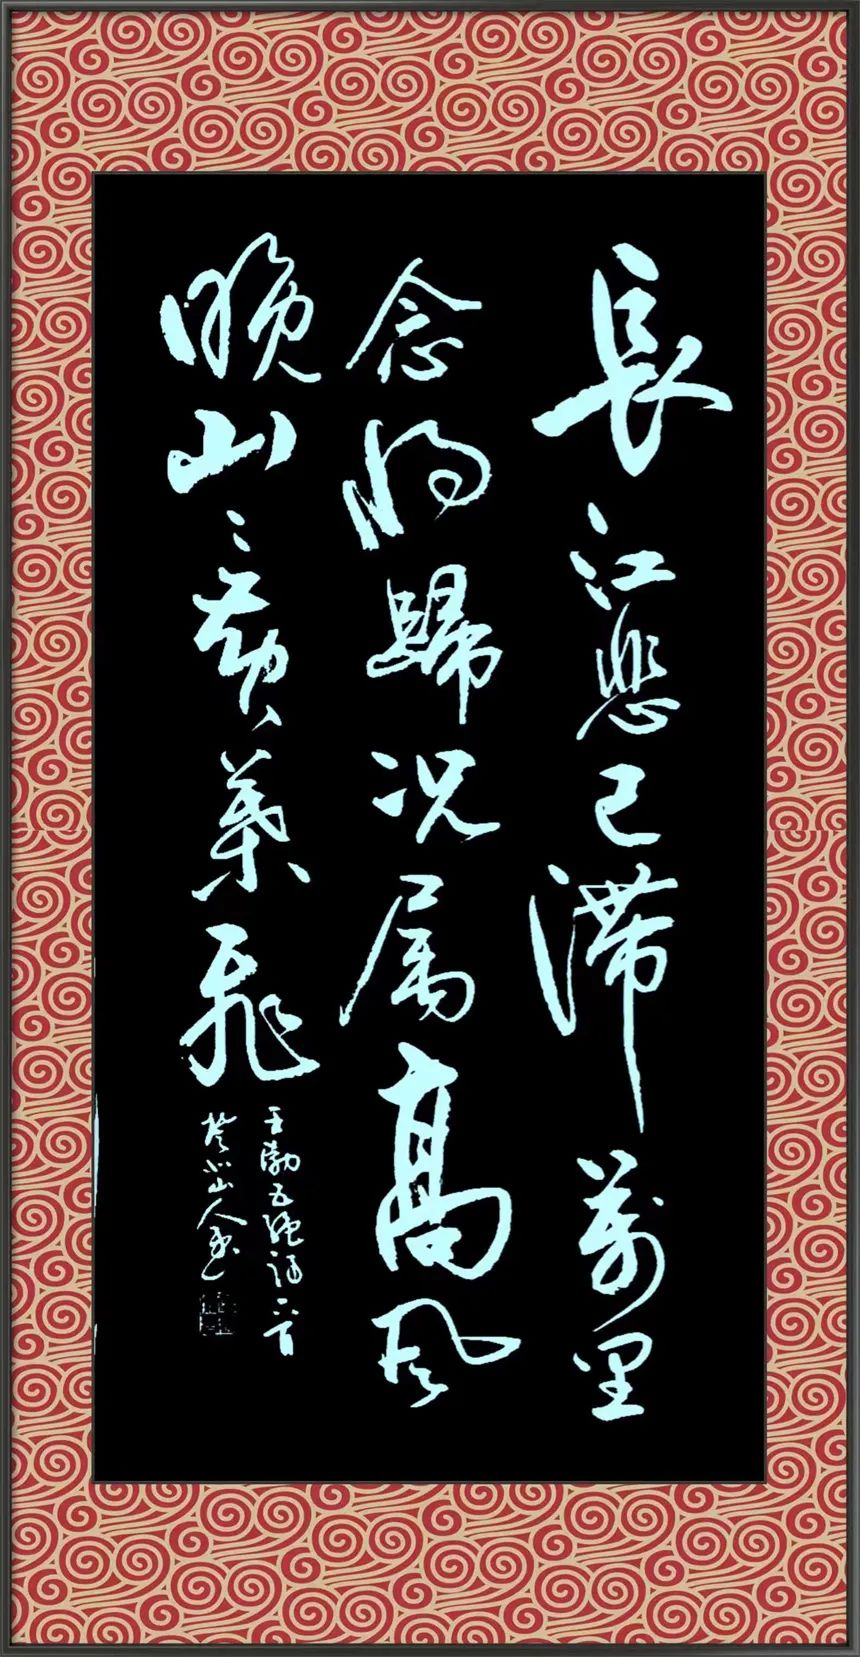 長江悲已滞萬里
念将歸况属高風
晚山〻黄葉飛
王勃五絕詩一首
山人書